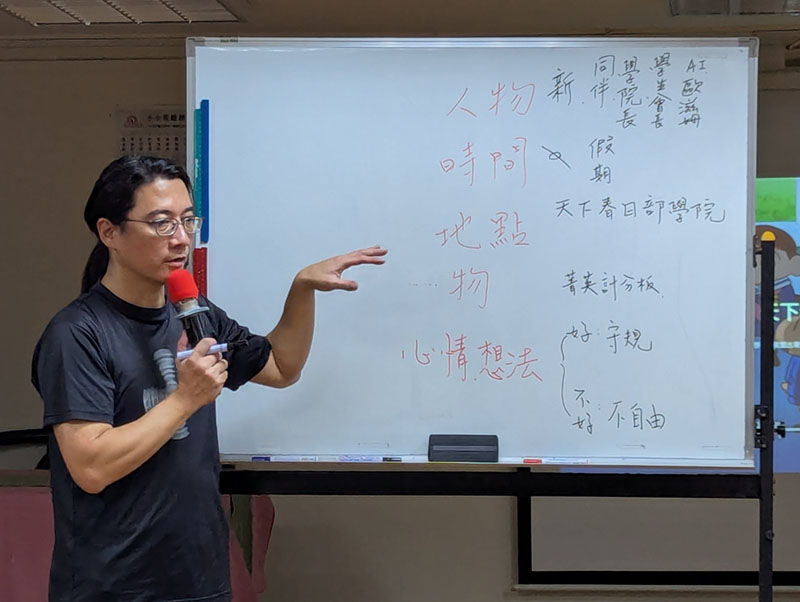 人物 新 同伴 學院長 學生會長 AI歐滋姆
時間 假期
地點 天下春日部學院
物 菁英計分板
心情.想法 好:守規
不好:不自由
天下